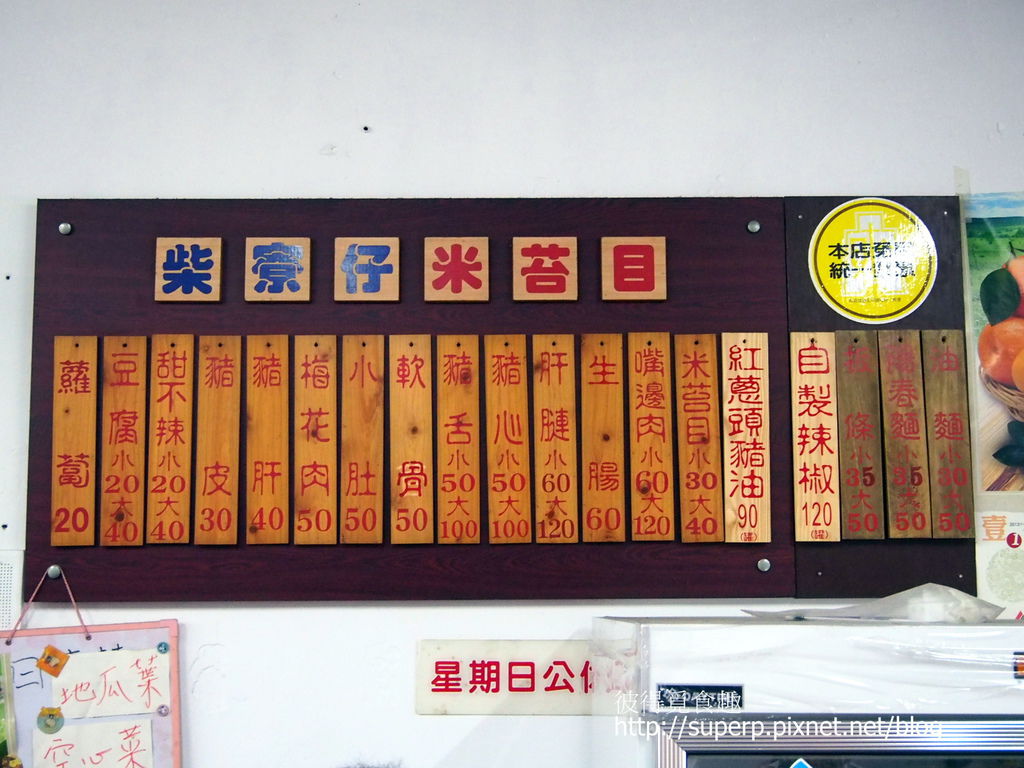 柴寮仔米苔目
蘿蔔 20
豆腐 小20 大40
甜不辣 小20 大40
豬皮 30
豬肝 40
梅花肉 50
小肚 50
軟骨 50
豬舌 小50 大100
豬心 小50 大100
肝腱 小60 大120
生腸 60
嘴邊肉 小60 大120
米苔目 小30 大40
紅蔥頭豬油 90 (罐)
自製辣椒 120 (罐)
粄條 小35 大50
陽春麵 小35 大50
油麵 小30 大50
本店免用
統一發票
壹
1
地瓜葉
空心菜
星期日公休
彼得覓食趣
http://superp.pixnet.net/blog